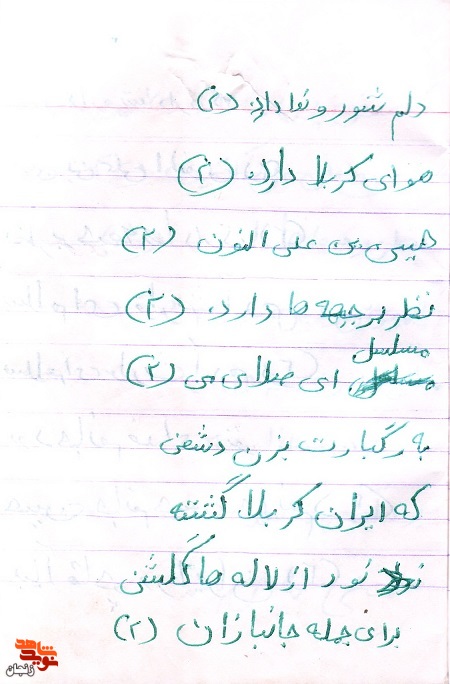 دلم شور و نوا دارد (۲)
هوای کربلا دارد (۲)
خمینی بن علی النون (۲)
نظر بر جبهه ها دارد (۲)
مسلسل
ای صلای من (۲)
به رگبارت بزن دشمن
که ایران کربلا گشته
نور از لاله ها گلشن
برای جمله جانبازان (۲)
نوید شاهد
زنجان